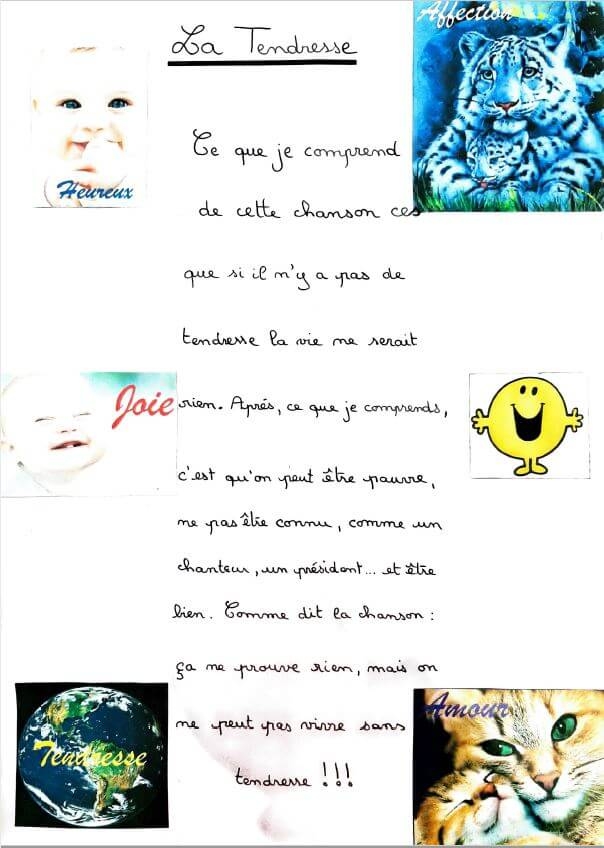 La Tendresse
Affection
Heureux
Ce que je comprend
de cette chanson ces
que si il n'y a pas de
tendresse la vie ne serait
Joie
rien. Après, ce que je comprends,
c'est qu'on peut être pauvre,
ne pas être connu, comme un
chanteur, un président... et être
bien. Comme dit la chanson :
ça ne prouve rien, mais on
Amour
ne peut pas vivre sans
Tendresse
tendresse !!!